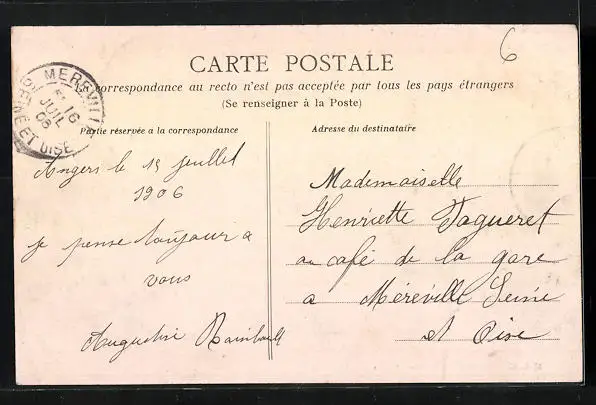 6
CARTE POSTALE
correspondance au recto n'est pas acceptée par tous les pays étrangers
(Se renseigner à la Poste)
MEREVILLE
16
JUIL
06
ET OISE
Partie réservée a la correspondance
Adresse du destinataire
Angers le 15 Juillet
1906
je pense toujour a
vous
Augustine Raimbault
Mademoiselle
Henriette Tagueret
au café de la gare
a Méreville Seine
et Oise